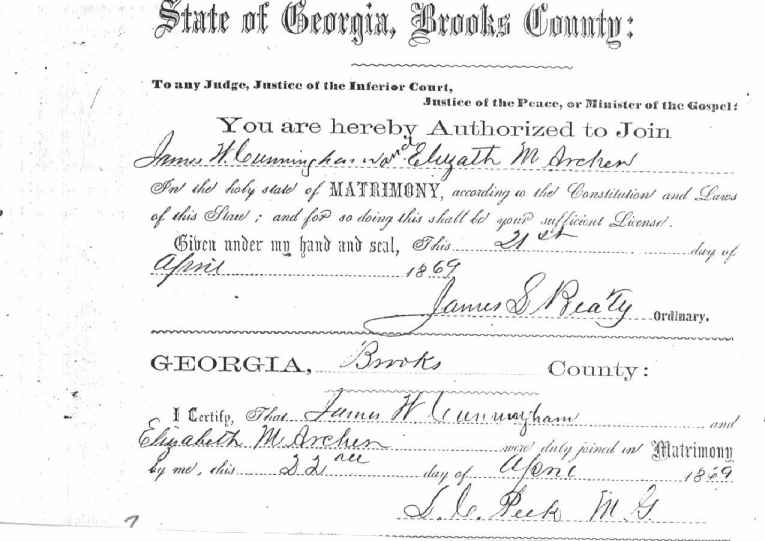 State of Georgia, Brooks County:
To any Judge, Justice of the Inferior Court,
Justice of the Peace, or Minister of the Gospel:
You are hereby Authorized to Join
James W. Cunningham and Elizath M Archer
In the holy state of MATRIMONY, according to the Constitution and Laws
of this State; and for so doing this shall be your sufficient License.
Given under my hand and seal, This 21st day of
April 1869
James S Beaty Ordinary.
GEORGIA, Brooks County:
I Certify, That James W Cunningham and
Elizabeth M Archer were duly joined in Matrimony
by me, this 22 day of April 1869
Peck M G